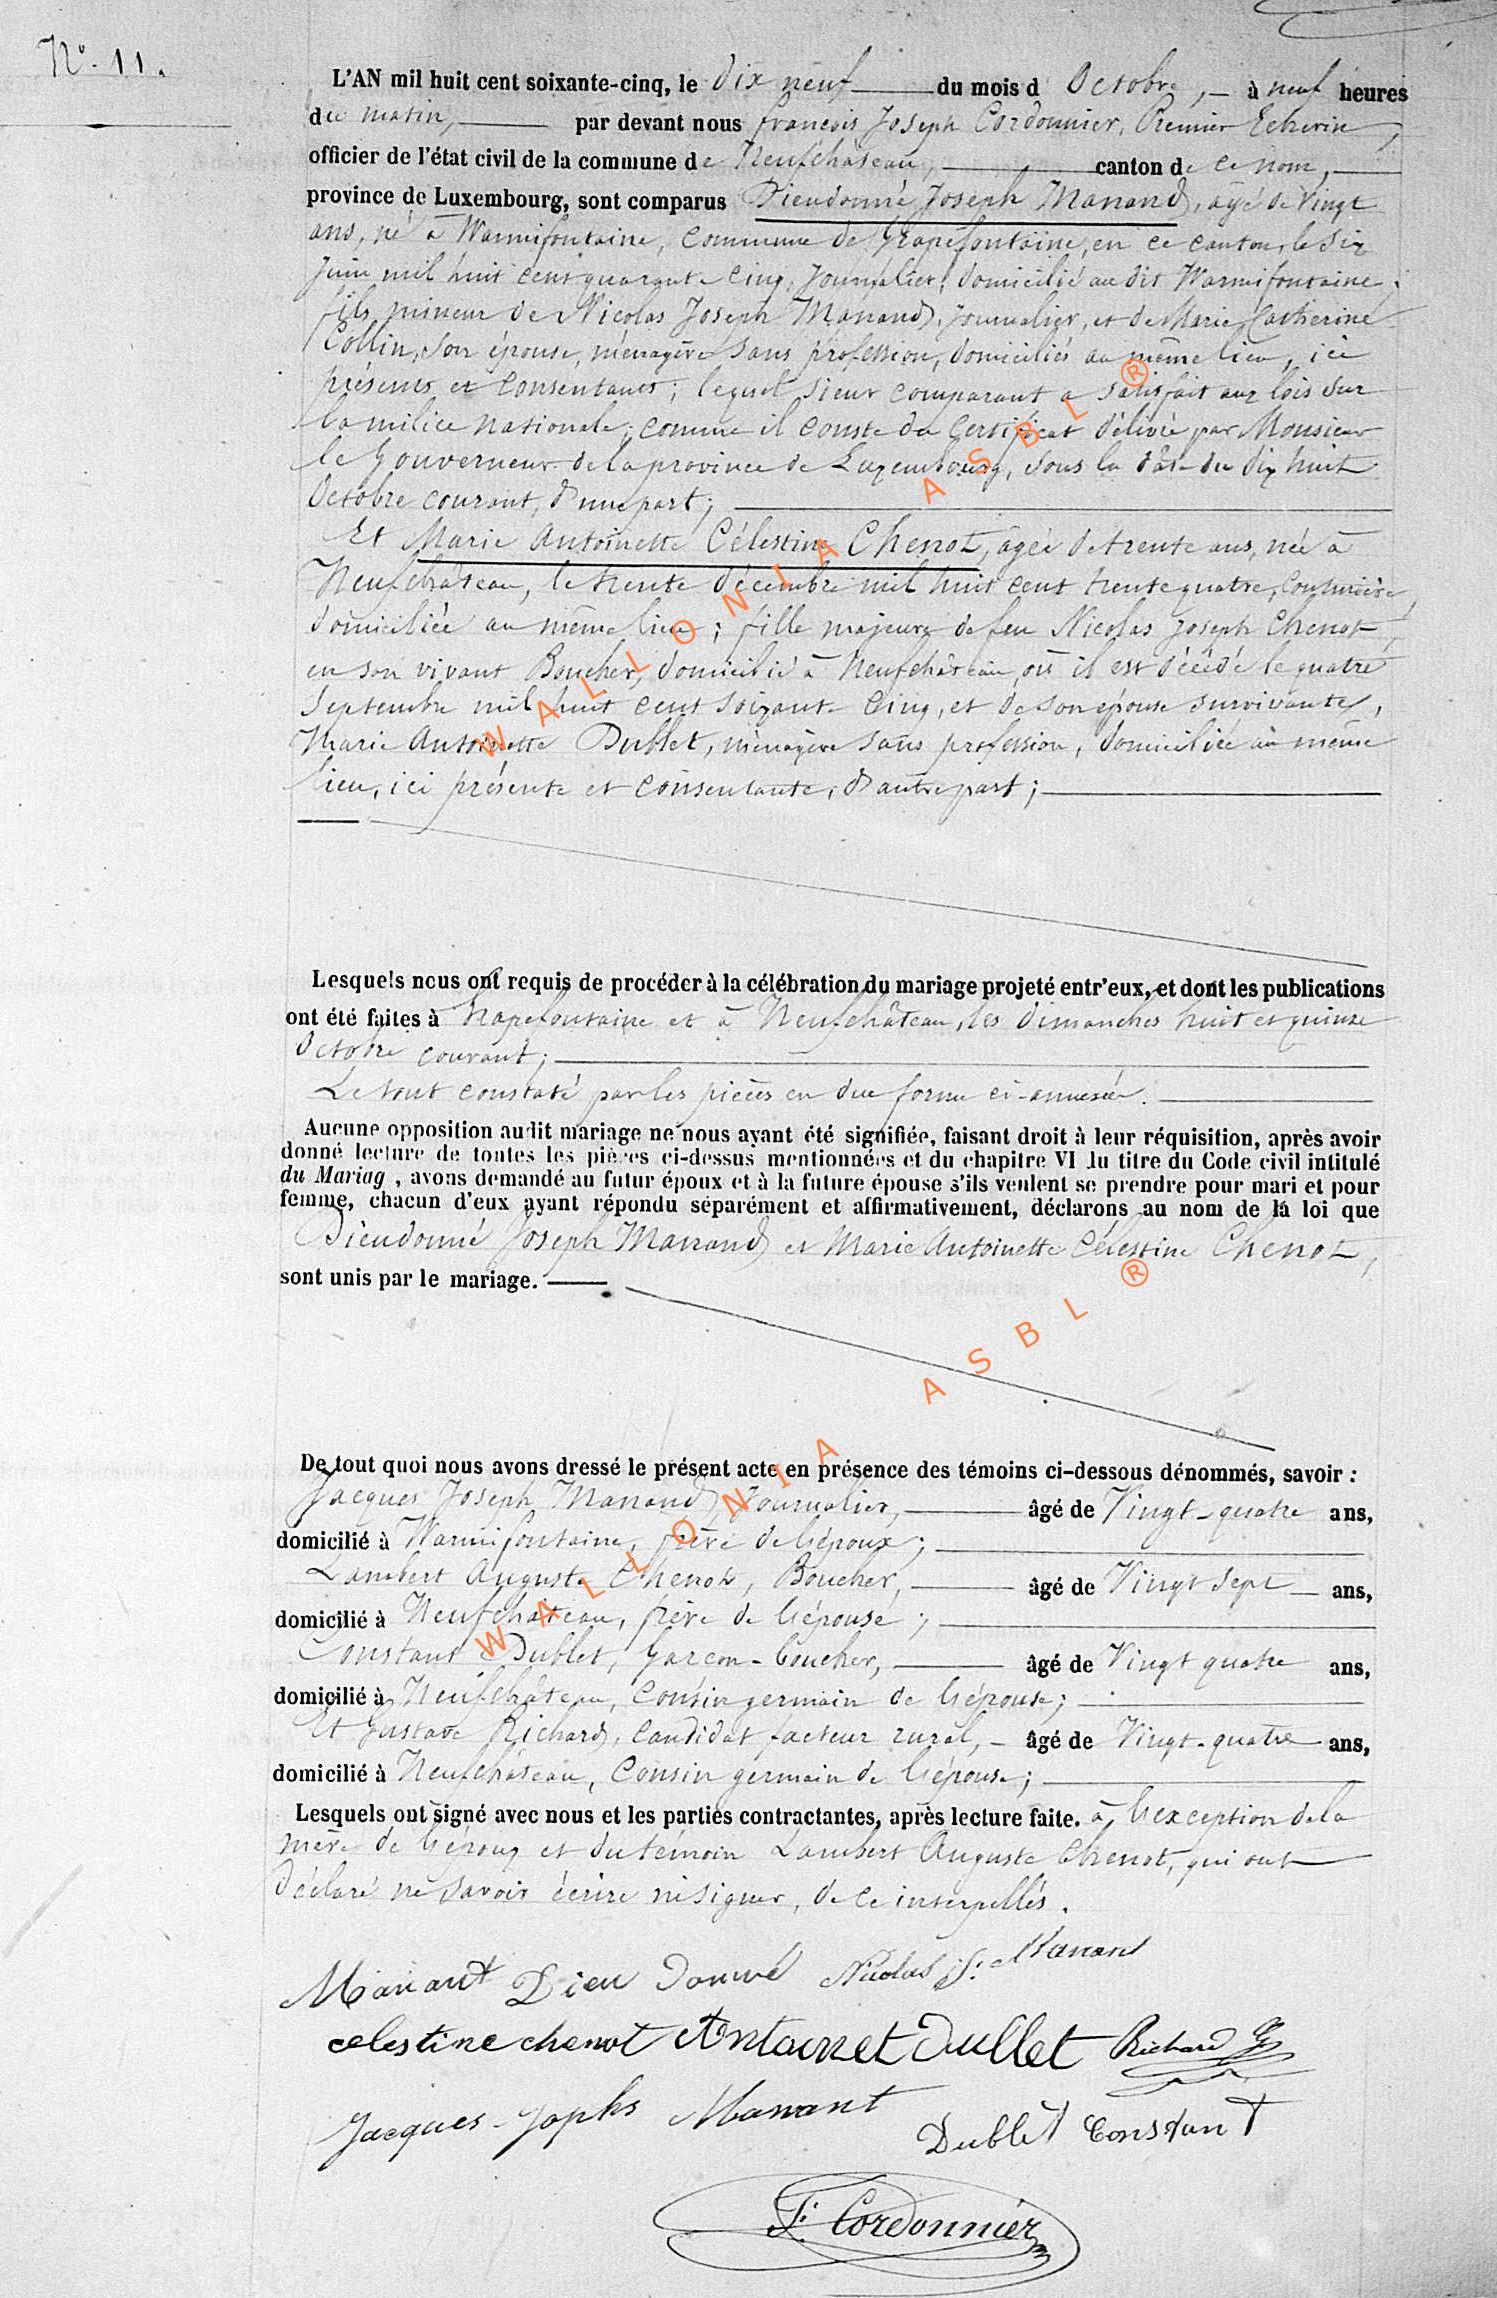 N° 11.
L'AN mil huit cent soixante-cinq, le dix neuf du mois d'Octobre, à neuf heures
du matin, par devant nous françois Joseph Cordonnier, Premier Echevin,
officier de l'état civil de la commune de Neufchâteau, canton de ce nom,
province de Luxembourg, sont comparus Dieudonné Joseph Manand, agé de Vingt
ans, né à Warmifontaine, commune de Grapefontaine, en ce canton, le six
Juin mil huit cent quarante cinq, Journalier, domicilié au dit Warmifontaine,
fils mineur de Nicolas Joseph Manand, journalier, et de Marie Catherine
Collin, son épouse, ménagère sans profession, domiciliés au même lieu, ici
présents et consentants; lequel sieur comparant a satisfait aux lois sur
la milice nationale, comme il conste du Certificat délivré par Monsieur
le Gouverneur de la province de Luxembourg, sous la date du dix huit
Octobre courant, d'une part;
Et Marie Antoinette Célestine Chenot, agée de trente ans, née à
Neufchâteau, le trente décembre mil huit cent trente quatre, Couturière,
domiciliée au même lieu; fille majeure de feu Nicolas Joseph Chenot
en son vivant Boucher, domicilié à Neufchâteau où il est décédé le quatre
Septembre mil huit cent soixante Cinq, et de son épouse survivante,
Marie Antoinette Dublet, ménagère sans profession, domiciliée au même
lieu, ici présente et consentante, d'autre part;
Lesquels nous ont requis de procéder à la célébration du mariage projeté entr'eux, et dont les publications
ont été faites à Grapefontaine et à Neufchâteau, les dimanches huit et quinze
Octobre courant;
Le tout constaté par les pièces en due forme ci-annexée.
Aucune opposition audit mariage ne nous ayant été signifiée, faisant droit à leur réquisition, après avoir
donné lecture de toutes les pièces ci-dessus mentionnées et du chapitre VI du titre du Code civil intitulé
du Mariag , avons demandé au futur époux et à la future épouse s'ils veulent se prendre pour mari et pour
femme, chacun d'eux ayant répondu séparément et affirmativement, déclarons au nom de la loi que
Dieudonné Joseph Manand et Marie Antoinette Célestine Chenot,
sont unis par le mariage.
De tout quoi nous avons dressé le présent acte en présence des témoins ci-dessous dénommés, savoir :
Jacques Joseph Manand, Journalier, âgé de Vingt-quatre ans,
domicilié à Warmifontaine, frère de l'époux;
Lambert Auguste Chenot, Boucher, âgé de Vingt sept ans,
domicilié à Neufchâteau, frère de l'épouse;
Constant Dublet, garçon-boucher, âgé de Vingt quatre ans,
domicilié à Neufchâteau, Cousin germain de l'épouse;
Et Gustave Richard, candidat facteur rural, âgé de Vingt-quatre ans,
domicilié à Neufchâteau, Cousin germain de l'épouse;
Lesquels ont signé avec nous et les parties contractantes, après lecture faite. à l'exception de la
mère de l'époux et du témoin Lambert Auguste Chenot, qui ont
déclaré ne savoir écrire ni signer, de ce interpellés.
Manant Dieu donné Nicolas J. Manand
celestine chenot Antoinet dullet Richard G
Jacques-Jophs Manant
Dublet Constant
F. Cordonnier
WALLONIA ASBL ®
WALLONIA ASBL ®